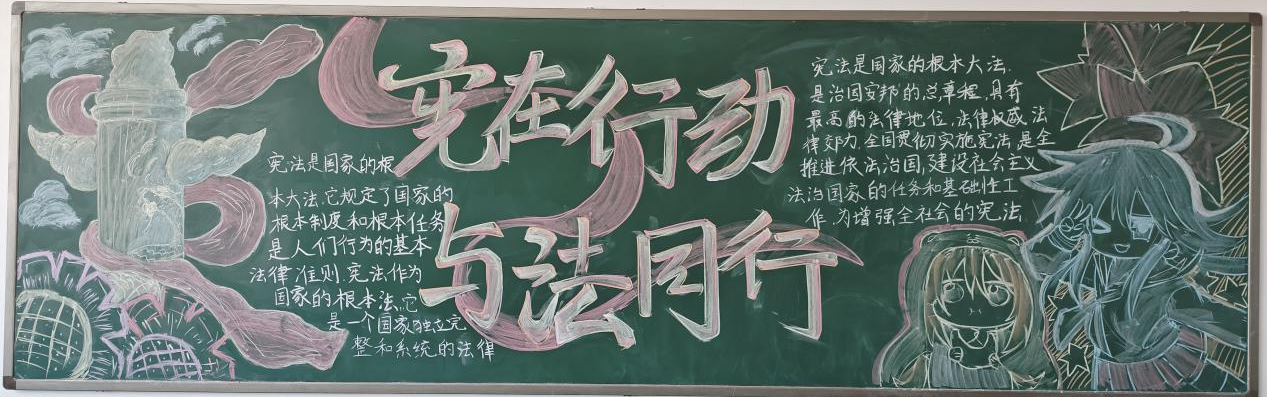 宪在行动
与法同行
宪法是国家的根
本大法,它规定了国家的
根本制度和根本任务
是人们行为的基本
法律准则.宪法作为
国家的根本法,它
是一个国家独立完
整和系统的法律
宪法是国家的根本大法.
是治国安邦的总章程,具有
最高的法律地位,法律权威,法
律效力.全国贯彻实施宪法,是全
推进依法治国,建设社会主义
法治国家的任务和基础性工
作.为增强全社会的宪法